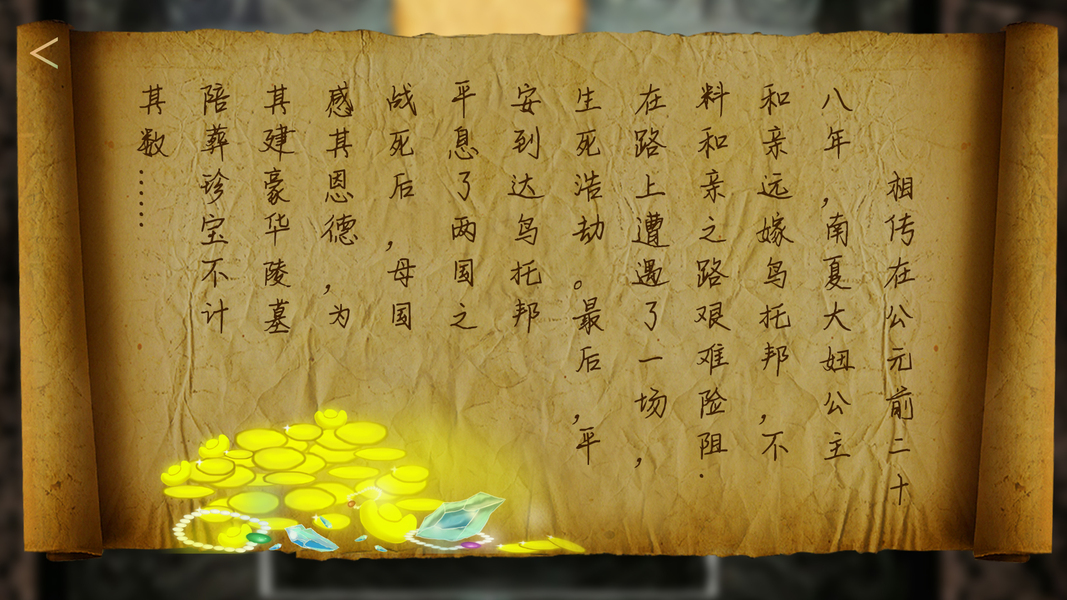 相传在公元前二十
八年，南夏大妞公主
和亲远嫁鸟托邦，不
料和亲之路艰难险阻.
在路上遭遇了一场，
生死浩劫。最后，平
安到达鸟托邦
平息了两国之
战死后，母国
感其恩德，为
其建豪华陵墓
陪葬珍宝不计
其数……